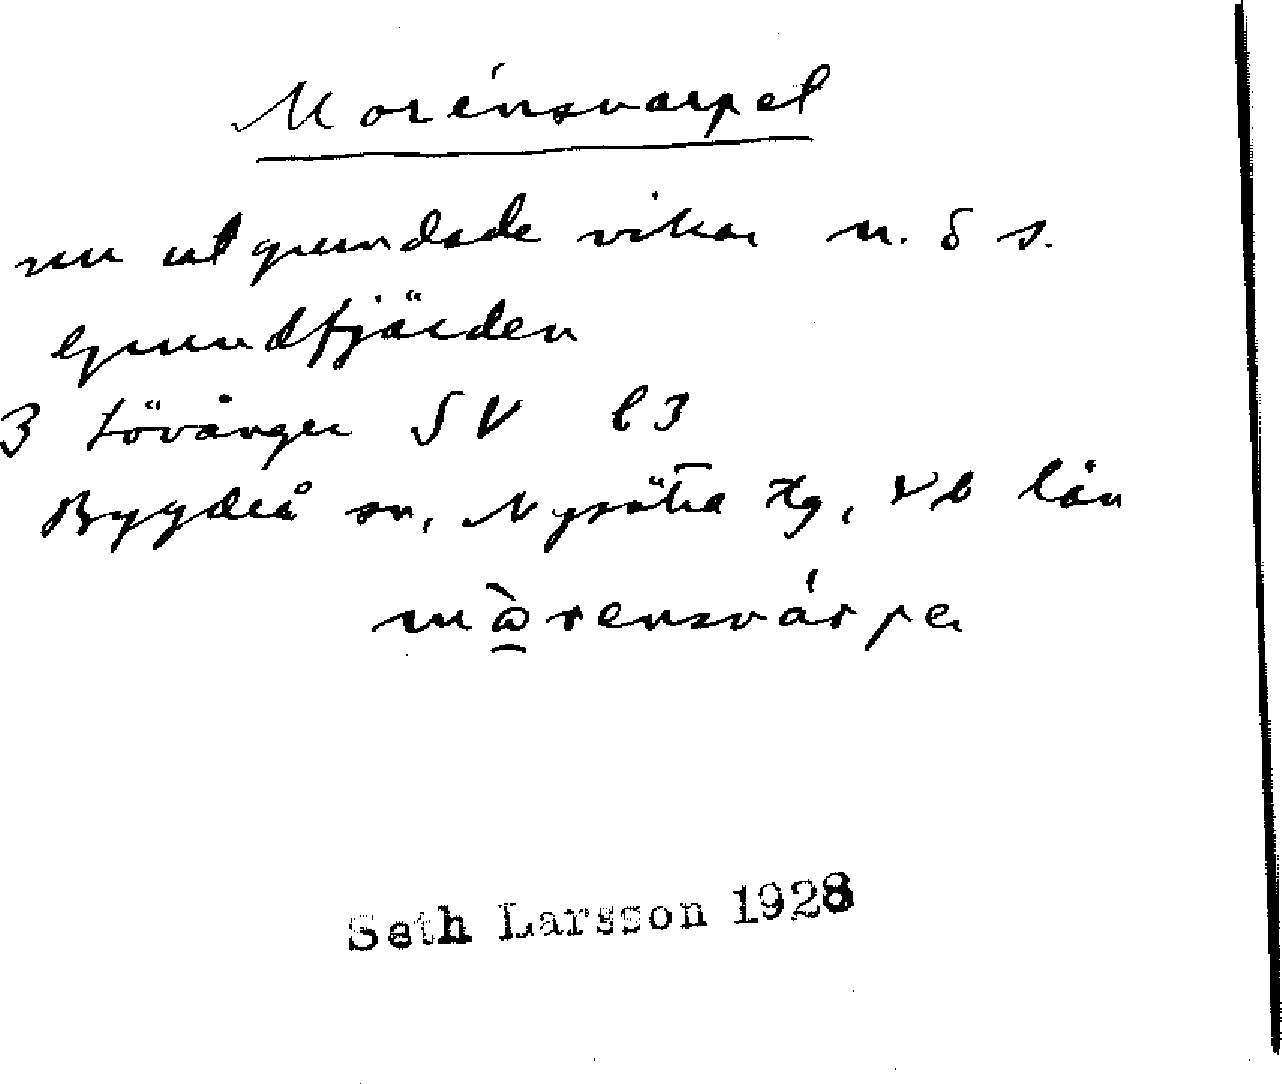 Morénsvarpet
nu utgrundade vikar n. o s.
Grundfjärden
3 Lövånger SV l 3
Bygdeå sn, Nysätra tg, Vb län
mò̰rensvárpe
Seth Larsson 1928